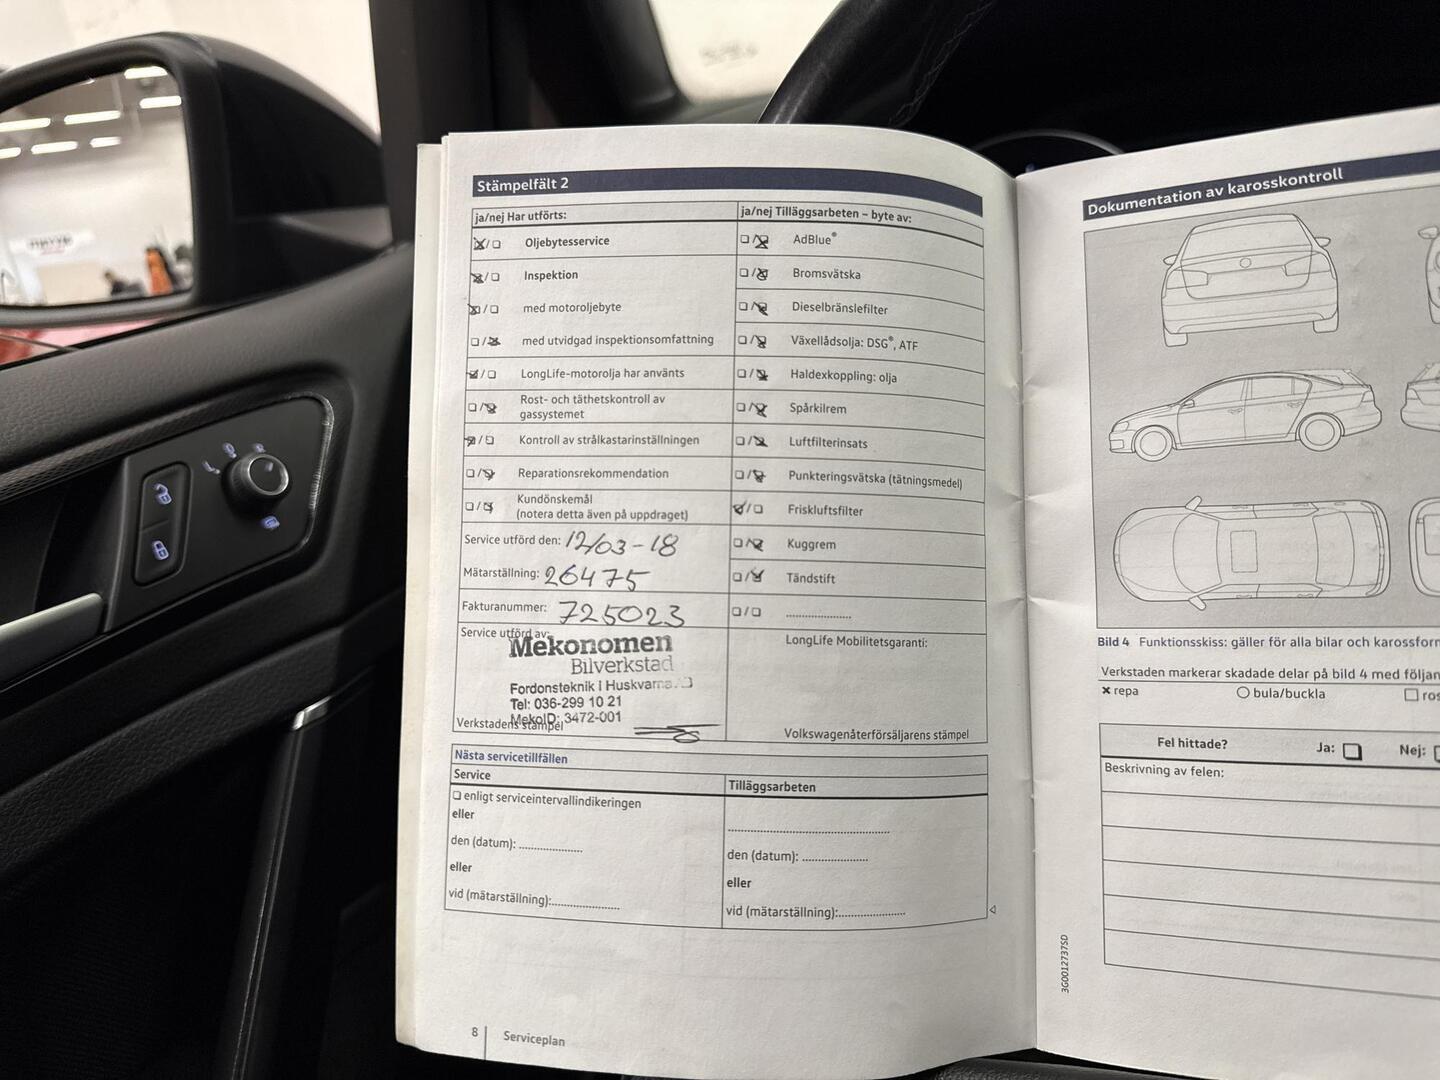 Stämpelfält 2
ja/nej Har utförts:
Oljebytesservice
Inspektion
med motoroljebyte
med utvidgad inspektionsomfattning
LongLife-motorolja har använts
Rost- och täthetskontroll av
gassystemet
Kontroll av strålkastarinställningen
Reparationsrekommendation
Kundönskemål
(notera detta även på uppdraget)
Service utförd den: 12/03-18
Mätarställning: 26475
Fakturanummer: 725023
Service utförd av:
Mekonomen
Bilverkstad
Fordonsteknik i Huskvarna
Tel: 036-299 10 21
MekoID: 3472-001
Verkstadens stämpel
ja/nej Tilläggsarbeten – byte av:
AdBlue®
Bromsvätska
Dieselbränslefilter
Växellådsolja: DSG®, ATF
Haldexkoppling: olja
Spårkilrem
Luftfilterinsats
Punkteringsvätska (tätningsmedel)
Friskluftsfilter
Kuggrem
Tändstift
LongLife Mobilitetsgaranti:
Volkswagenåterförsäljarens stämpel
Nästa servicetillfällen
Service
enligt serviceintervallindikeringen
eller
den (datum):
eller
vid (mätarställning):
Tilläggsarbeten
den (datum):
eller
vid (mätarställning):
8 Serviceplan
Dokumentation av karosskontroll
Bild 4 Funktionsskiss: gäller för alla bilar och karossform
Verkstaden markerar skadade delar på bild 4 med följan
repa
bula/buckla
ros
Fel hittade? Ja: Nej:
Beskrivning av felen:
3G0012737SD